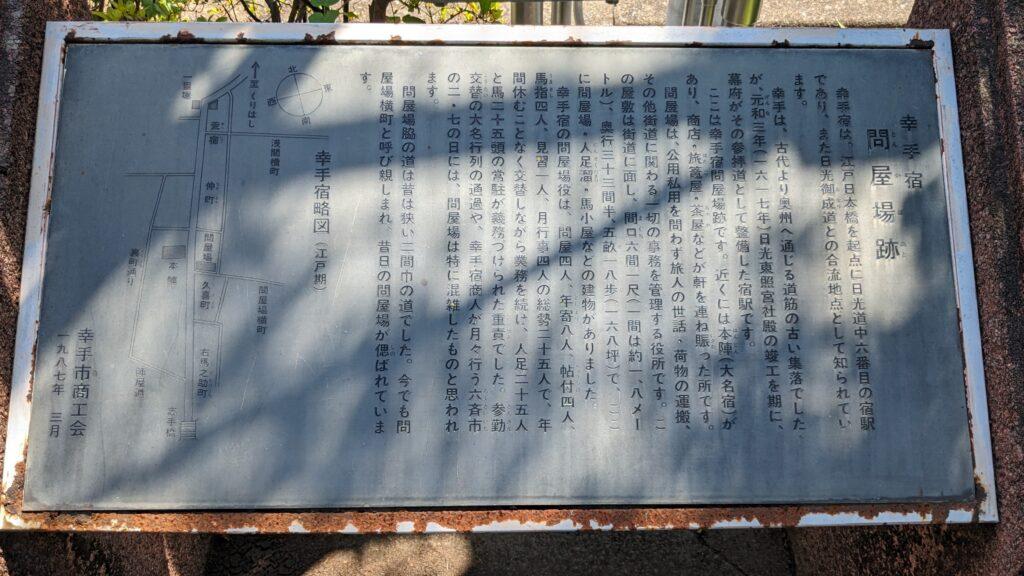 幸手宿
問屋場跡
幸手宿は、江戸日本橋を起点に日光道中六番目の宿駅
であり、また日光御成道との合流地点として知られてい
ます。
幸手は、古代より奥州へ通じる道筋の古い集落でした
が、元和三年(一六一七年)日光東照宮社殿の竣工を期に、
幕府がその参拝道として整備した宿駅です。
ここは幸手宿問屋場跡です。近くには本陣(大名宿)が
あり、商店・旅籠屋・茶屋などが軒を連ね賑った所です。
問屋場は、公用私用を問わず旅人の世話、荷物の運搬、
その他街道に関わる一切の事務を管理する役所です。こ
の屋敷は街道に面し、間口六間一尺(一間は約一、八メー
トル)、奥行三十三間半、五畝一八歩(一六八坪)で、ここ
に問屋場・人足溜・馬小屋などの建物がありました。
幸手宿の問屋場役は、問屋四人、年寄八人、帖付四人、
馬指四人、見習一人、月行事四人の総勢二十五人で、年
間休むことなく交替しながら業務を続け、人足二十五人
と馬二十五頭の常駐が義務づけられた重責でした。参勤
交替の大名行列の通過や、幸手宿商人が月々行う六斉市
の二・七の日には、問屋場は特に混雑したものと思われ
ます。
問屋場脇の道は昔は狭い二間巾の道でした。今でも問
屋場横町と呼び親しまれ、昔日の問屋場が偲ばれていま
す。
幸手宿略図(江戸期)
北
東
南
西
至くりはし
一里塚
荒宿
浅間横町
仲町
問屋場
久喜町
問屋場横町
本陣
裏町通り
右馬之助町
陣屋通
志手橋
幸手市商工会
一九八七年 三月